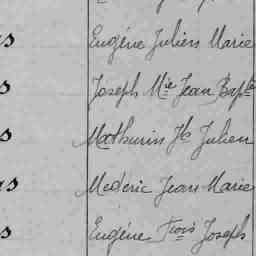 s Eugène Julien Marie
s Joseph Mie Jean Bapte
s Mathurin Js Julien
as Mederic Jean Marie
s Eugène Frois Joseph